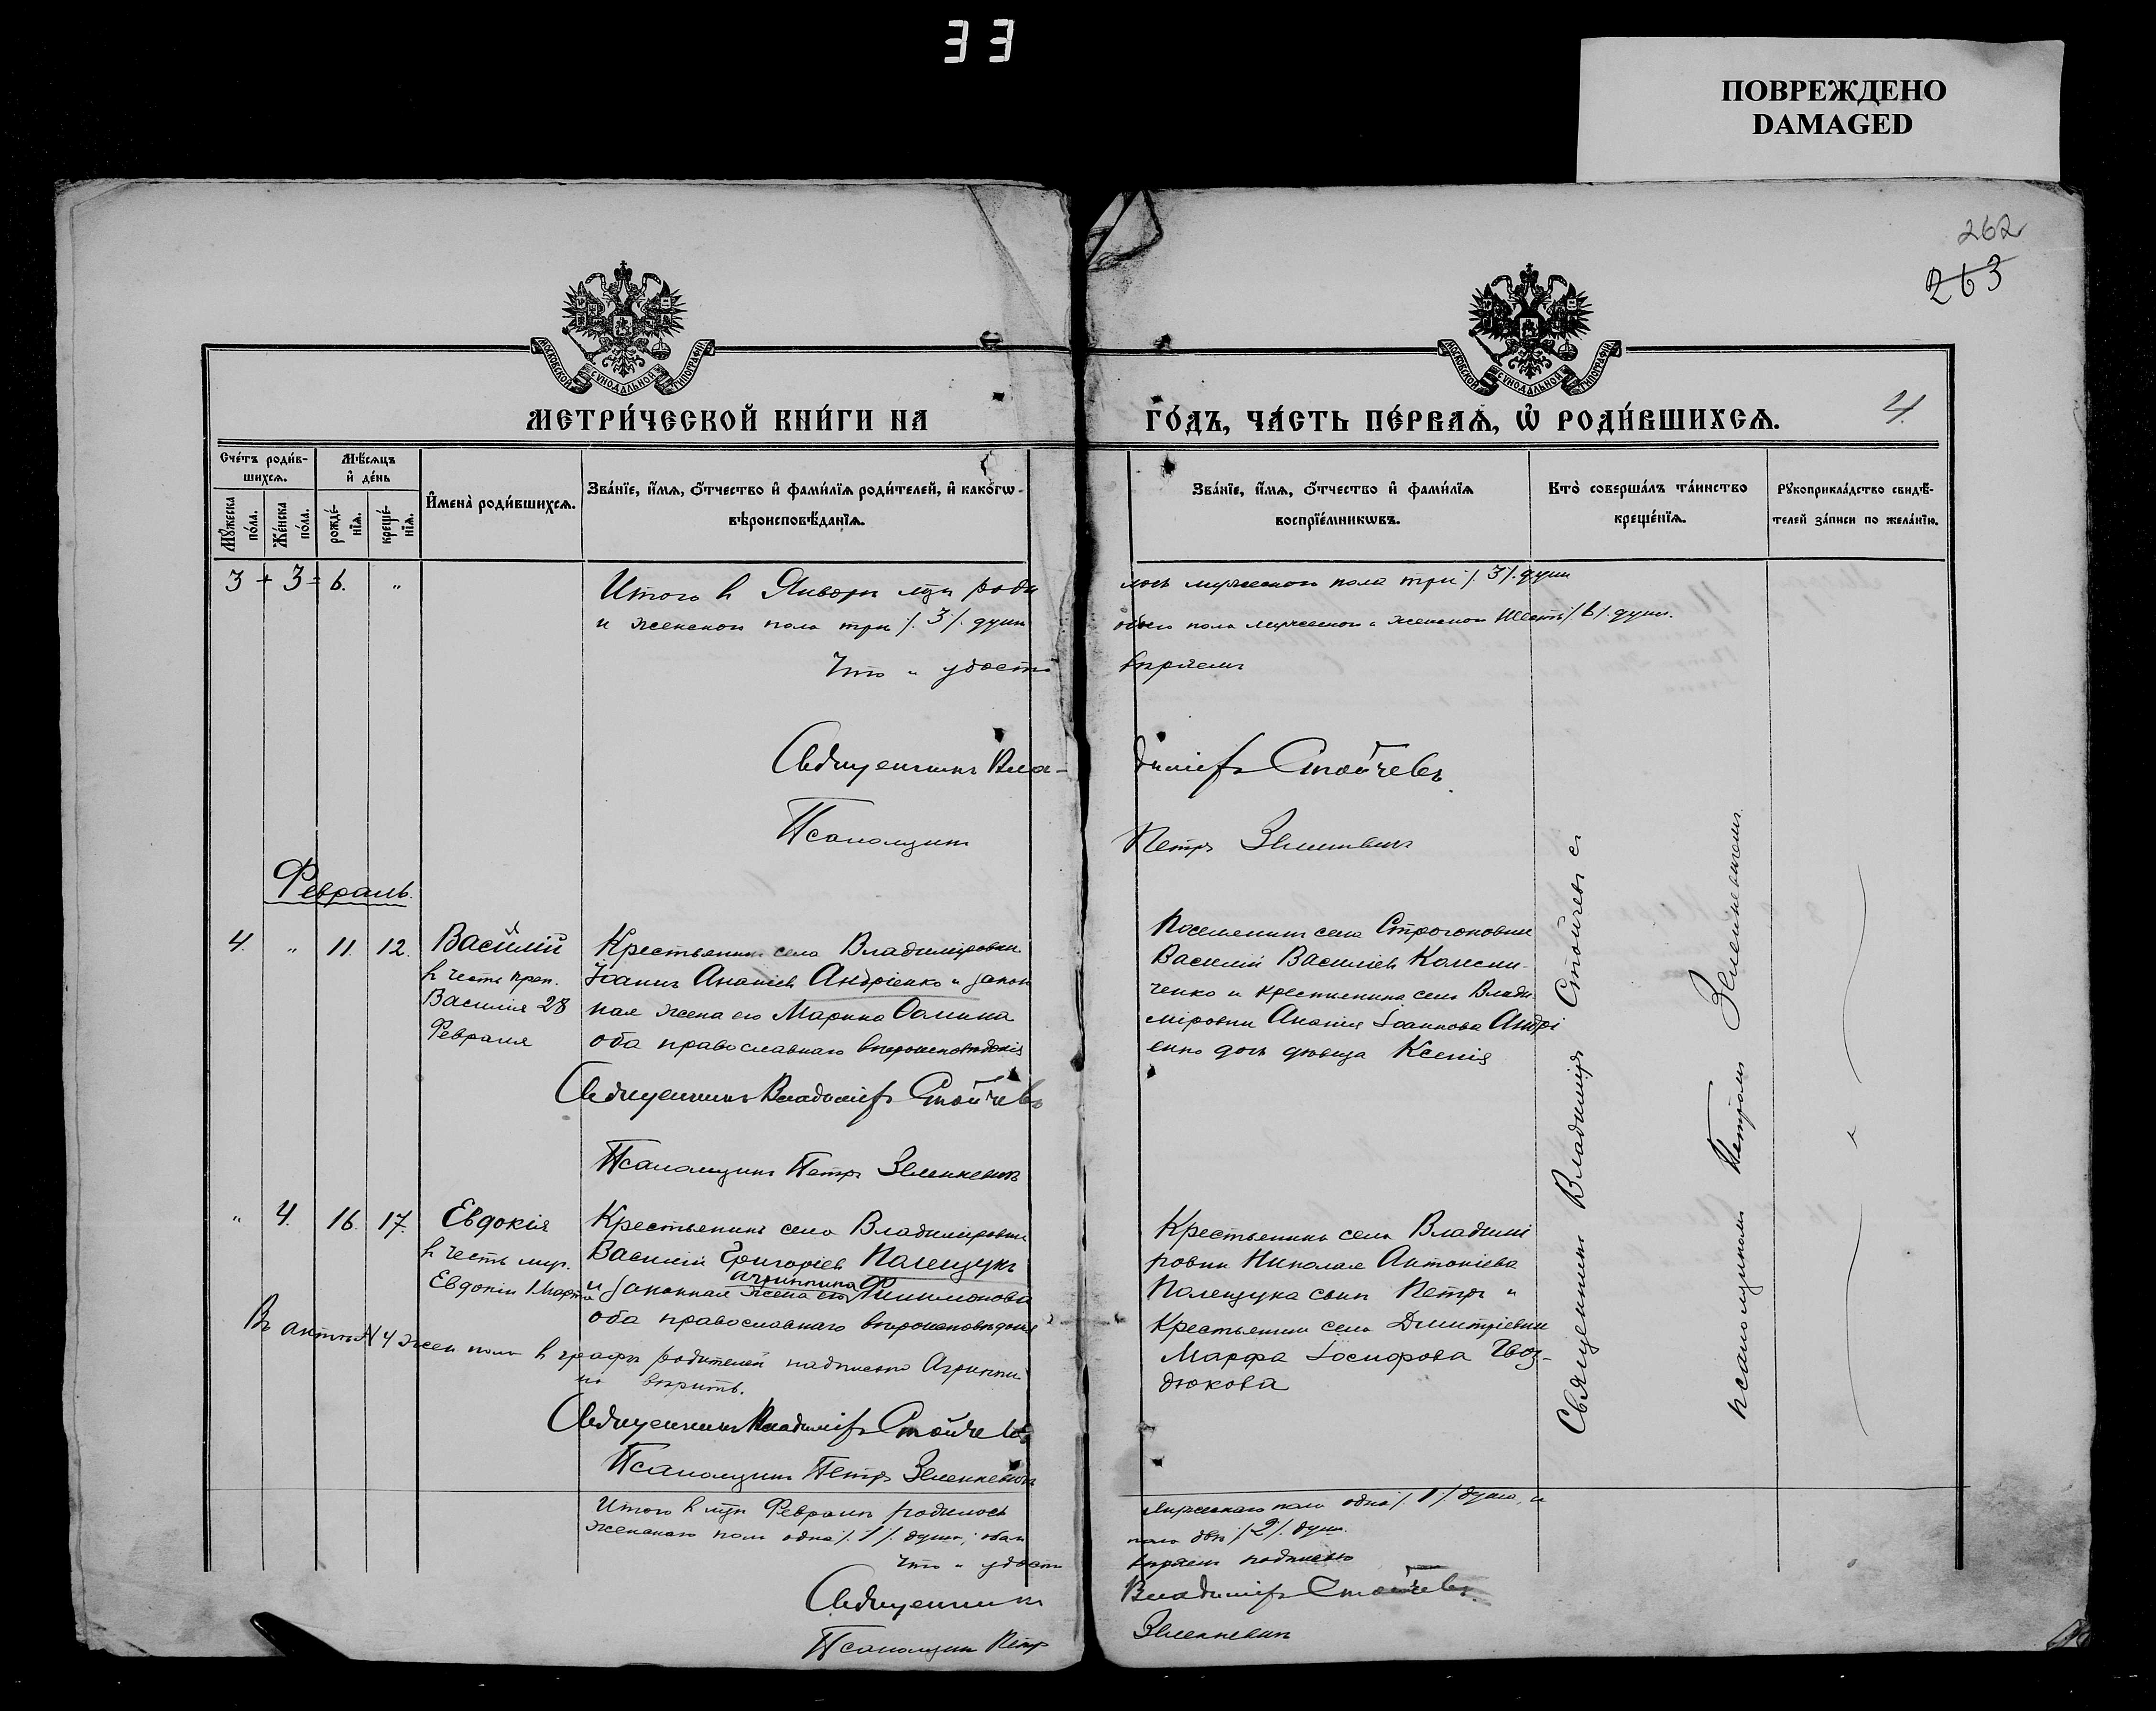 33
ПОВРЕЖДЕНО
DAMAGED
262
263
МОСКОВСКОЙ СѴНОДАЛЬНОЙ ТИПОГРАФІИ
МОСКОВСКОЙ СѴНОДАЛЬНОЙ ТИПОГРАФІИ
МЕТРИ́ЧЕСКОЙ КНИ́ГИ НА
ГО́ДЪ, ЧА́СТЬ ПЕ́РВАѦ, Ѡ҆ РОДИ́ВШИХСѦ.
4.
Сче́тъ роди́в-
шихсѧ.
Мѣ́сѧцъ
и҆ де́нь
Мꙋ́жеска
по́ла.
Же́нска
по́ла.
рожде́-
нїѧ.
креще́-
нїѧ.
И҆мена̀ роди́вшихсѧ.
Зва́нїе, и҆́мѧ, ѻ҆́тчество и҆ фами́лїѧ роди́телей, и҆ како́гѡ
вѣроисповѣ́данїѧ.
Зва́нїе, и҆́мѧ, ѻ҆́тчество и҆ фами́лїѧ
воспрїе́мникѡвъ.
Кто̀ соверша́лъ та́инство
креще́нїѧ.
Рꙋкоприкла́дство свидѣ́-
телей за́писи по жела́нїю.
3 + 3 = 6. "
Итого в Январѣ мцѣ роди
лось мужескаго пола три /. 3 /. души
и женскаго пола три /. 3 /. души
обоего пола мужескаго и женскаго шесть /. 6 /. душъ.
Что и удосто
вѣряемъ
Священникъ Вла-
димiръ Стойчевъ.
Псаломщикъ
Петръ Зеленкевичъ
Февраль.
4. " 11. 12. Василiй
в честь преп.
Василiя 28
Февраля
Крестьянинъ села Владимiровки
Iоаннъ Ананiевъ Андрiенко и закон
ная жена его Марина
оба православнаго вѣроисповѣданiя
Священникъ Владимiръ Стойчевъ
Псаломщикъ Петръ Зеленкевичъ
Поселянинъ села Строгоновки
Василiй Василiевъ Колесни-
ченко и крестьянина села Влади-
мiровки Ананiя Iоаннова Андрi
енко дочь дѣвица Ксенiя
Священникъ Владимiръ Стойчевъ с
псаломщикомъ Петромъ Зеленкевичемъ
" 4. 16. 17. Евдокiя
в честь муч.
Евдокiи 1 Марта
Крестьянинъ села Владимiровки
Василiй Григорiевъ Палещукъ
Агриппина
и законная жена его Филимонова
оба православнаго вѣроисповѣданiя
Въ актѣ № 4 жен. пола в графѣ родителей надписано Агриппи
на вѣрить.
Священникъ Владимiръ Стойчевъ
Псаломщикъ Петръ Зеленкевичъ
Крестьянина села Владимi
ровки Николая Антонiева
Палещука сынъ Петръ и
крестьянка села Дмитрiевки
Марфа Iосифова Гвоз-
дюкова
Итого в мцѣ Февралѣ родилось
мужескаго пола одна /. 1 /. душа, и
женскаго пола одна /. 1 /. душа; обоего
пола двѣ /. 2 /. души.
Что и удосто
вѣряемъ подписью
Священникъ
Владимiръ Стойчевъ.
Псаломщикъ Петръ
Зеленкевичъ